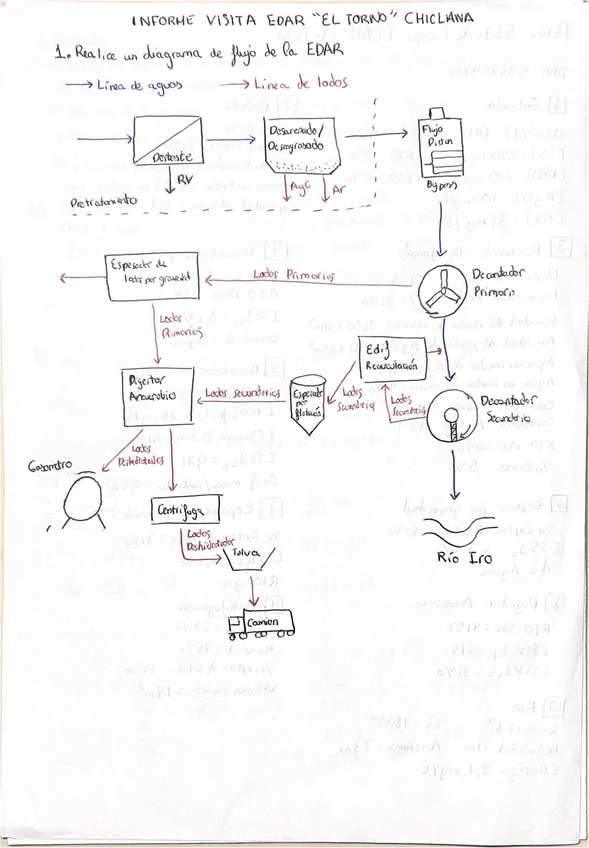 INFORME VISITA EDAR "EL TORNO" CHICLANA
1. Realice un diagrama de flujo de la EDAR
→ Línea de aguas → Línea de lodos
Desbaste
Desarenado/
Desengrasado
Flujo
Piston
Bypass
RV
AyG
Ar
Pretratamiento
Espesador de
lodos por gravedad
Lodos Primarios
Decantador
Primario
Lodos
Primarios
Edif
Recirculación
Digestor
Anaerobio
Lodos secundarios
Espesador
por
flotación
Lodos
Secundarios
Lodos
Secundarios
Decantador
Secundario
Gasometro
Lodos
Centrifuga
Lodos
Deshidratados
Tolva
Río Iro
Camion